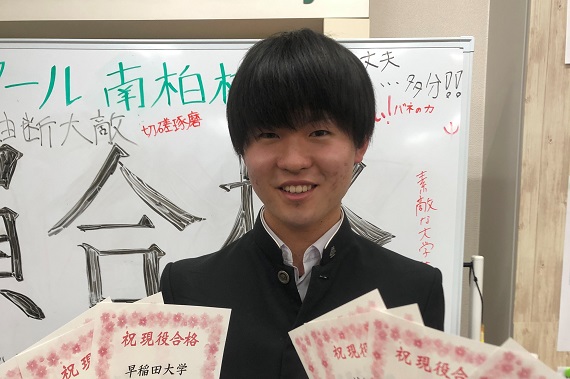 ール 南柏校
丈夫
…多分!!
油断大敵
切磋琢磨
い!バネの力
合格
素敵な大学
祝 現役合格
祝 現役合格
早稲田大学
祝 現役合格
祝 現役合格